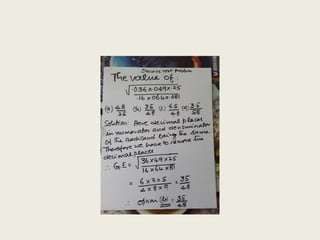 Square root problem
The value of
√ .036 × .049 × .25
.16 × .064 × .081
(a) 48/35 (b) 35/48 (c) (d) 35/58
Solution: Here decimal places
in numerator and denominator
of the radicand being the same.
Therefore we have to remove the
decimal places
∴ G.E = √ 36 × 49 × 25
16 × 64 × 81
= 6 × 7 × 5 = 35
4 × 8 × 9 48
∴ option (b) = 35
48